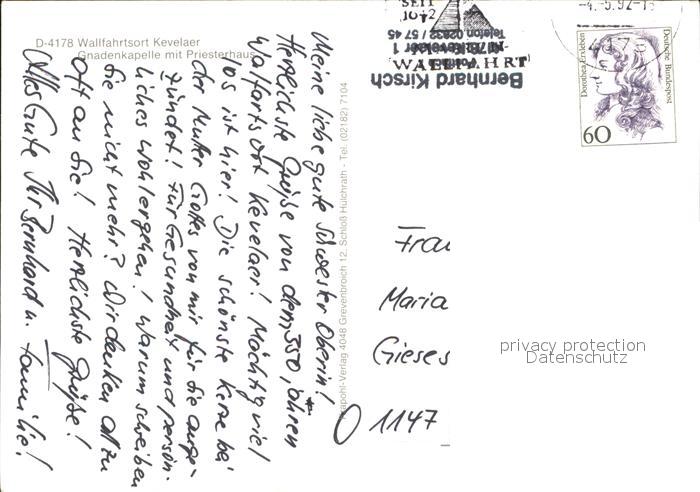 D-4178 Wallfahrtsort Kevelaer
Gnadenkapelle mit Priesterhaus
Meine liebe gute Schwester Oberin!
Herzlichste Grüße von dem 350 jähren
Walfartsort Kevelaer! Mächtig viel
los ist hier! Die schönste Kerze bei
der Mutter Gottes von mir für Sie ange-
zündet! Für Gesundheit und persön-
liches wohlergehen! Warum schreiben
Sie nicht mehr? Wir denken oft zu
oft an Sie! Herzlichste Grüße!
Alles Gute Ihr Bernhard u. Familie!
Krapohl-Verlag 4048 Grevenbroich 12, Schloß Hülchrath - Tel. (02182) 7104
SEIT
1642
WALLFAHRT
Bernhard Kirsch
4178 Kevelaer 1
Telefon 02832 / 57 45
-4.-5.92-
417
Dorothea Erxleben
Deutsche Bundespost
60
Frau
Maria
Gieses
O 1147
privacy protection
Datenschutz